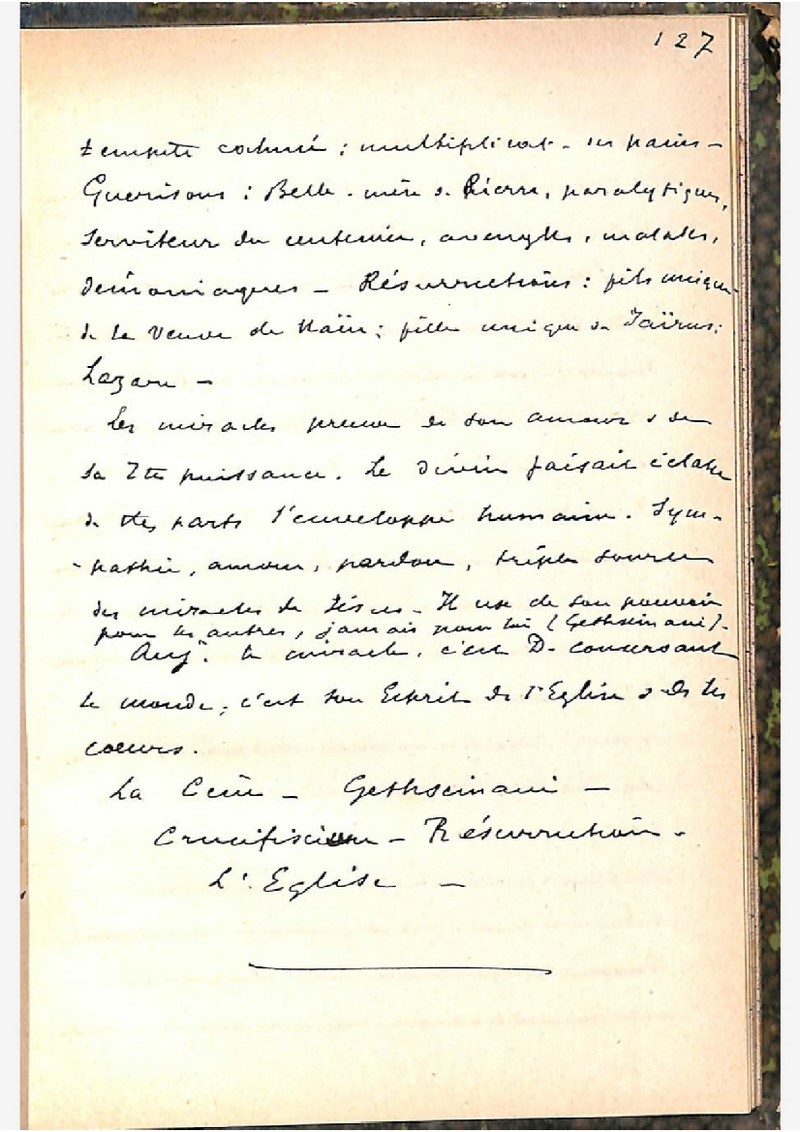 127
tempête calmée ; multiplicat. des pains –
Guérisons : Belle-mère de Pierre, paralytiques,
serviteur du centenier, aveugles, malades,
démoniaques – Résurrections : fils unique
de la veuve de Naïn ; fille unique de Jaïrus ;
Lazare –
Les miracles preuve de son amour & de
sa tte puissance. Le divin faisait éclater
de ttes parts l'enveloppe humaine. Sym-
-pathie, amour, pardon, triple source
des miracles de Jésus – Il use de son pouvoir
pour les autres, jamais pour lui (Gethsémané).
Auj. le miracle, c'est D. conversant
le monde ; c'est son Esprit ds l'Eglise & ds les
coeurs.
La Cène – Gethsémané –
Crucifixion – Résurrection –
L'Eglise –